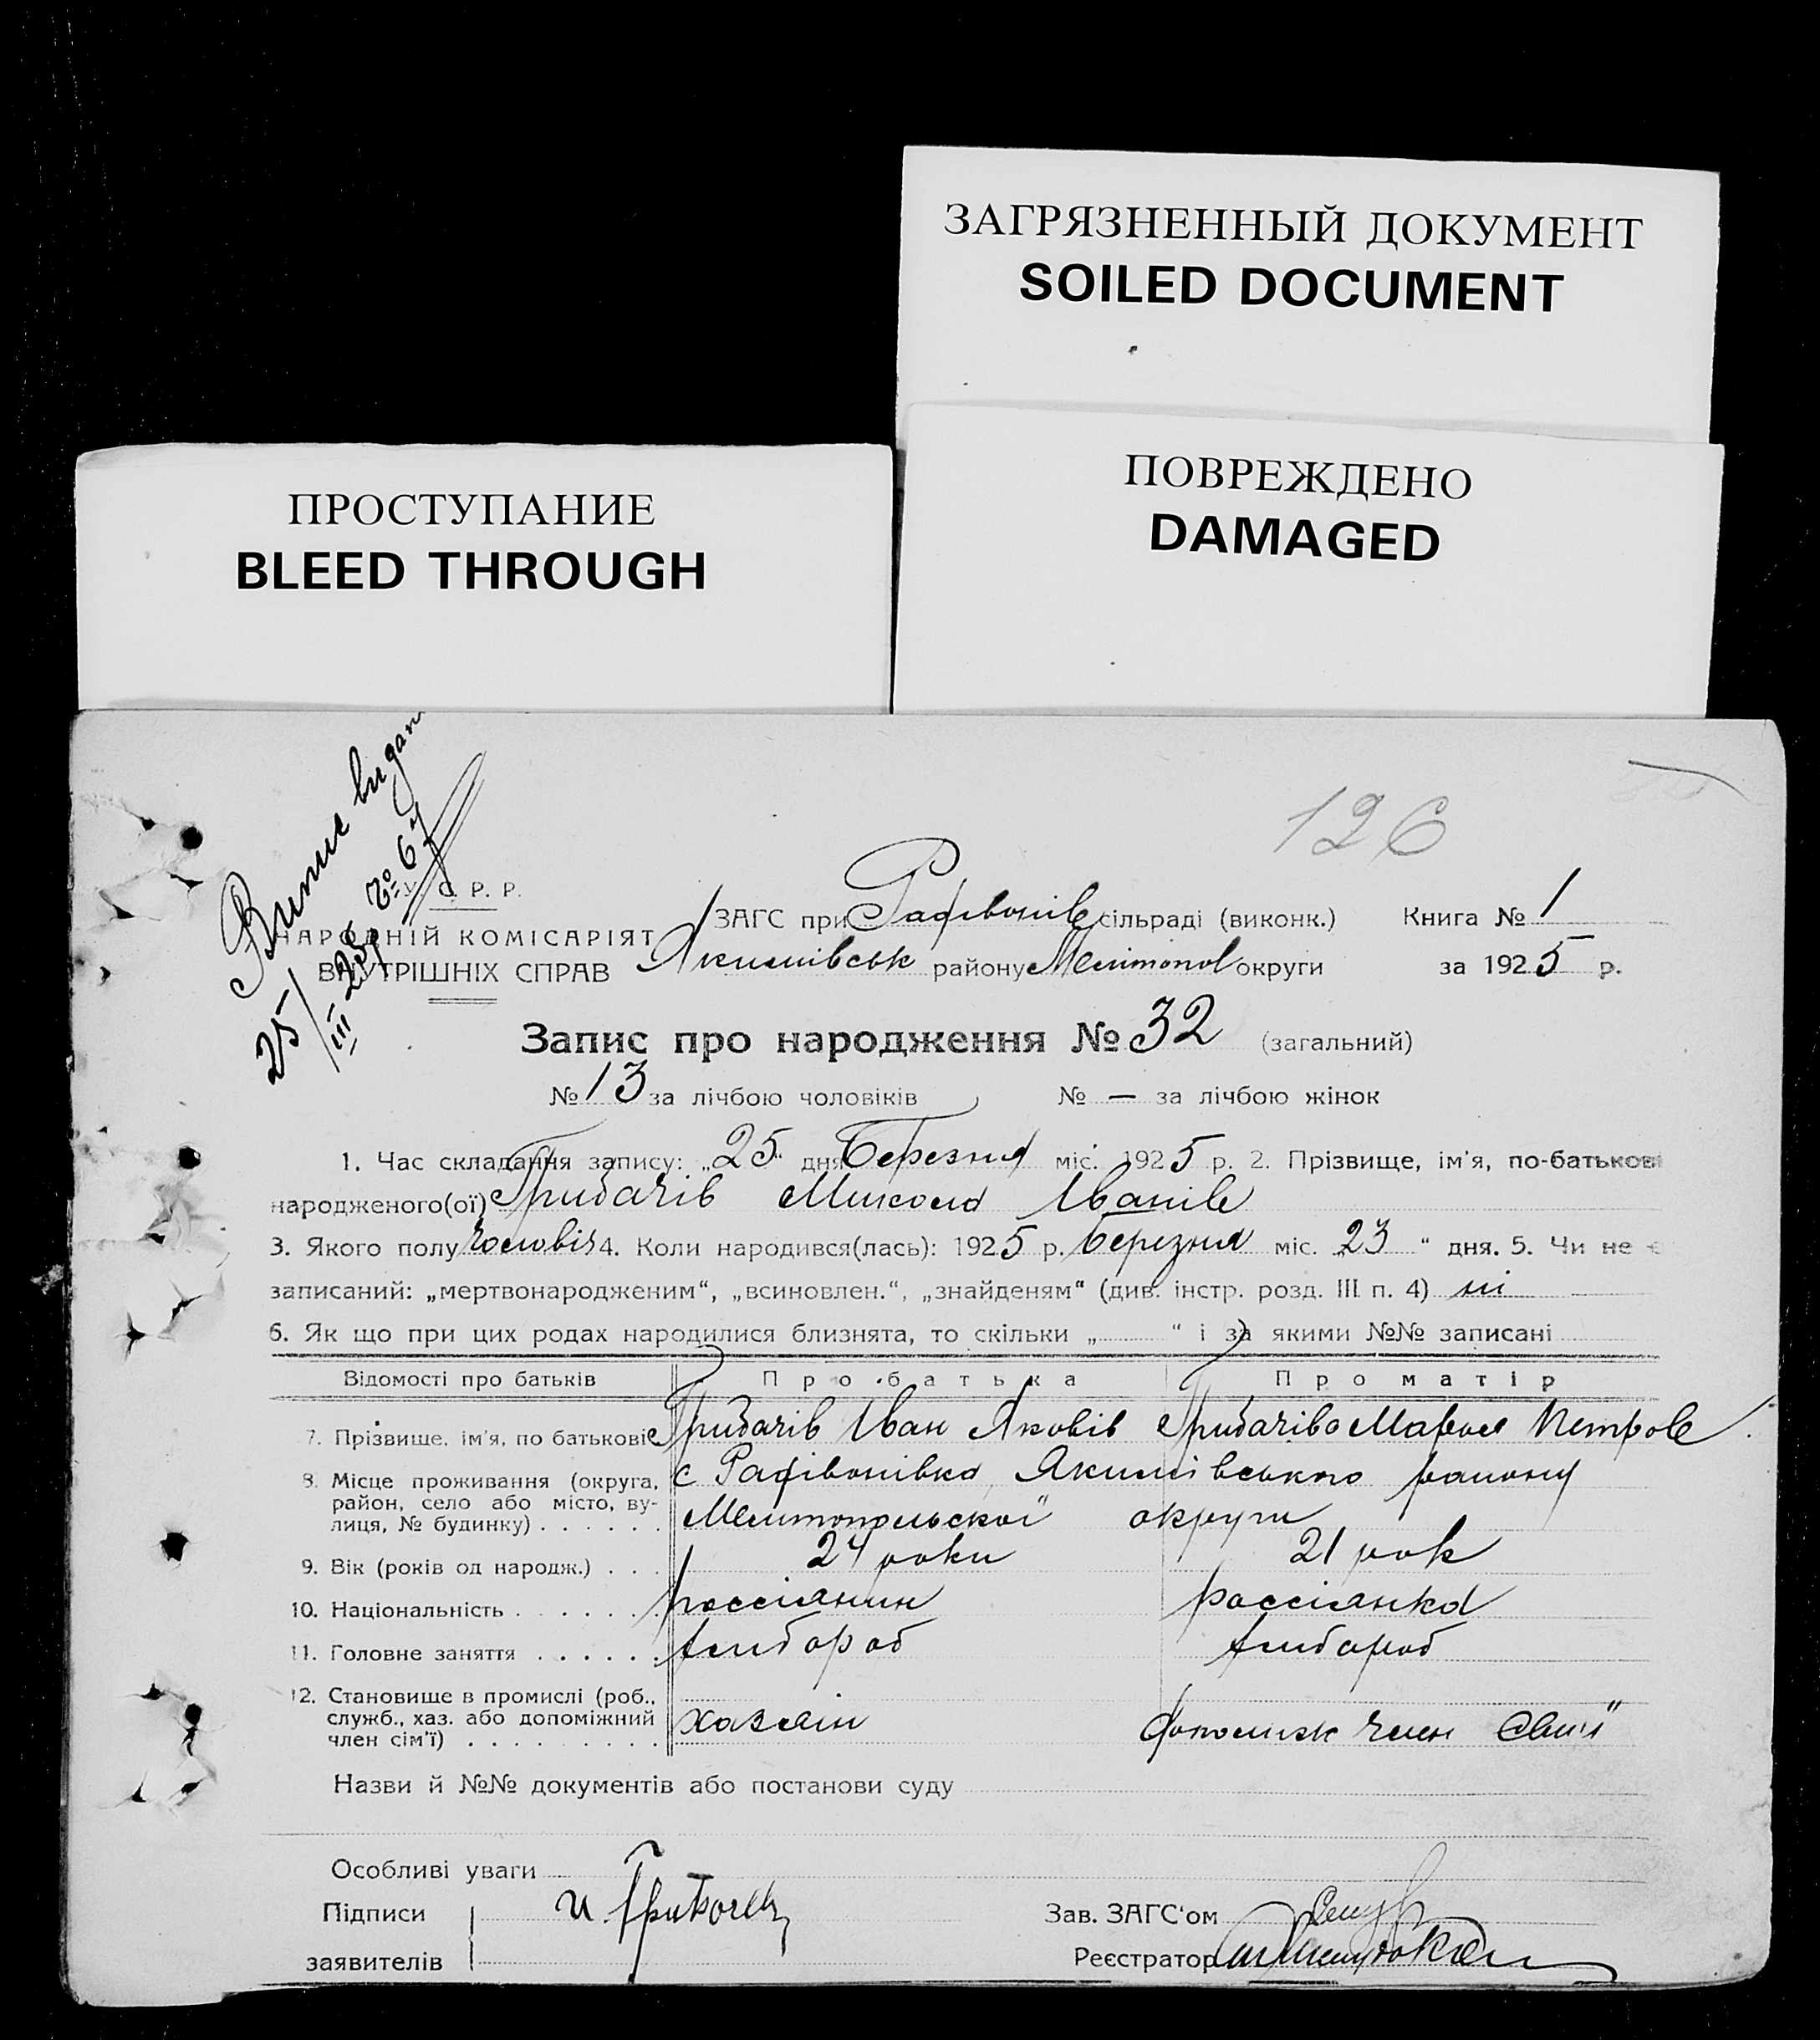 ЗАГРЯЗНЕННЫЙ ДОКУМЕНТ
SOILED DOCUMENT
ПРОСТУПАНИЕ
BLEED THROUGH
ПОВРЕЖДЕНО
DAMAGED
126
Витис видан
25/III 25р № 64
У. С. Р. Р.
НАРОДНІЙ КОМІСАРІЯТ
ВНУТРІШНІХ СПРАВ
ЗАГС при Радівонів сільраді (виконк.) Книга № 1
Якимівськ району Мелітопол округи за 1925 р.
Запис про народження № 32 (загальний)
№ 13 за лічбою чоловіків № — за лічбою жінок
1. Час складання запису: „25“ дня Березня міс. 1925 р. 2. Прізвище, ім'я, по-батькові
народженого(ої) Грибачів Микола Іванів
3. Якого полу чоловіч 4. Коли народився(лась): 1925 р. березня міс. „23“ дня. 5. Чи не є
записаний: „мертвонародженим“, „всиновлен.“, „знайденям“ (див. інстр. розд. III п. 4) ні
6. Як що при цих родах народилися близнята, то скільки „ “ і за якими №№ записані
Відомості про батьків Про батька Про матір
7. Прізвище, ім'я, по батькові Грибачів Іван Яковів Грибачіва Марія Петров
8. Місце проживання (округа, с Радівонівка, Якимівського району
район, село або місто, ву-
лиця, № будинку) . . . . . . Мелитопольскої округи
9. Вік (років од народж.) . . . 24 роки 21 рок
10. Національність . . . . . . . россіянин россіянка
11. Головне заняття . . . . . . хлібороб хлібороб
12. Становище в промислі (роб.,
служб., хаз. або допоміжний хазяін допоміжн член сем'ї
член сім'ї) . . . . . . . . .
Назви й №№ документів або постанови суду
Особливі уваги
Підписи И. Грибачев Зав. ЗАГС'ом
заявителів Реєстратор